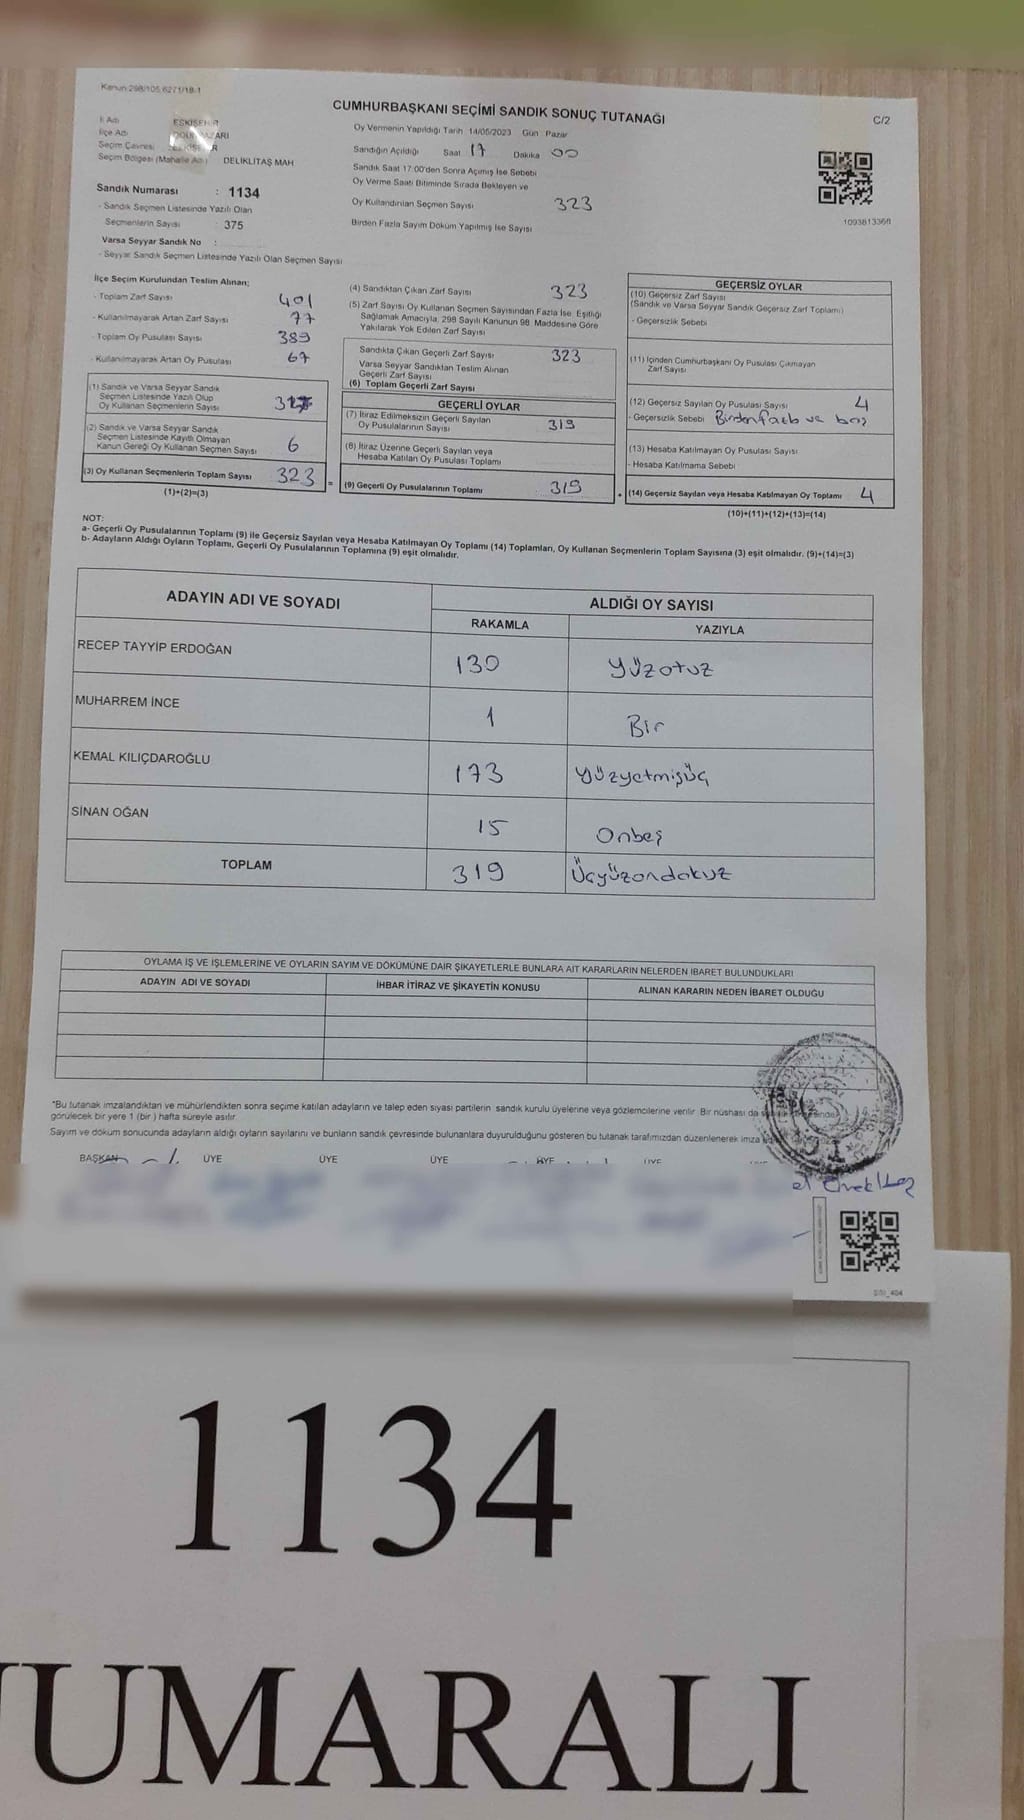 Kanun:298/105,6271/18-1
CUMHURBAŞKANI SEÇİMİ SANDIK SONUÇ TUTANAĞI
C/2
İl Adı ESKİŞEHİR
İlçe Adı
Seçim Çevresi
Seçim Bölgesi (Mahalle Adı) DELİKLİTAŞ MAH
Sandık Numarası : 1134
- Sandık Seçmen Listesinde Yazılı Olan
Seçmenlerin Sayısı : 375
Varsa Seyyar Sandık No :
- Seyyar Sandık Seçmen Listesinde Yazılı Olan Seçmen Sayısı
Oy Vermenin Yapıldığı Tarih 14/05/2023 Gün : Pazar
Sandığın Açıldığı Saat 17 Dakika 00
Sandık Saat 17:00'den Sonra Açımış İse Sebebi
Oy Verme Saati Bitiminde Sırada Bekleyen ve
Oy Kullandırılan Seçmen Sayısı 323
Birden Fazla Sayım Döküm Yapılmış İse Sayısı
İlçe Seçim Kurulundan Teslim Alınan;
- Toplam Zarf Sayısı 401
- Kullanılmayarak Artan Zarf Sayısı 77
- Toplam Oy Pusulası Sayısı 389
- Kullanılmayarak Artan Oy Pusulası 67
(1) Sandık ve Varsa Seyyar Sandık
Seçmen Listesinde Yazılı Olup
Oy Kullanan Seçmenlerin Sayısı
(2) Sandık ve Varsa Seyyar Sandık
Seçmen Listesinde Kayıtlı Olmayan
Kanun Gereği Oy Kullanan Seçmen Sayısı 6
(3) Oy Kullanan Seçmenlerin Toplam Sayısı 323
(1)+(2)=(3)
=
(4) Sandıktan Çıkan Zarf Sayısı 323
(5) Zarf Sayısı Oy Kullanan Seçmen Sayısından Fazla İse, Eşitliği
Sağlamak Amacıyla, 298 Sayılı Kanunun 98. Maddesine Göre
Yakılarak Yok Edilen Zarf Sayısı
Sandıkta Çıkan Geçerli Zarf Sayısı 323
Varsa Seyyar Sandıktan Teslim Alınan
Geçerli Zarf Sayısı
(6) Toplam Geçerli Zarf Sayısı
GEÇERLİ OYLAR
(7) İtiraz Edilmeksizin Geçerli Sayılan
Oy Pusulalarının Sayısı 319
(8) İtiraz Üzerine Geçerli Sayılan veya
Hesaba Katılan Oy Pusulası Toplamı
(9) Geçerli Oy Pusulalarının Toplamı 319
+
GEÇERSİZ OYLAR
(10) Geçersiz Zarf Sayısı
(Sandık ve Varsa Seyyar Sandık Geçersiz Zarf Toplamı)
- Geçersizlik Sebebi
(11) İçinden Cumhurbaşkanı Oy Pusulası Çıkmayan
Zarf Sayısı
(12) Geçersiz Sayılan Oy Pusulası Sayısı 4
- Geçersizlik Sebebi Birden fazla ve boş
(13) Hesaba Katılmayan Oy Pusulası Sayısı
- Hesaba Katılmama Sebebi
(14) Geçersiz Sayılan veya Hesaba Katılmayan Oy Toplamı 4
(10)+(11)+(12)+(13)=(14)
NOT:
a- Geçerli Oy Pusulalarının Toplamı (9) ile Geçersiz Sayılan veya Hesaba Katılmayan Oy Toplamı (14) Toplamları, Oy Kullanan Seçmenlerin Toplam Sayısına (3) eşit olmalıdır. (9)+(14)=(3)
b- Adayların Aldığı Oyların Toplamı, Geçerli Oy Pusulalarının Toplamına (9) eşit olmalıdır.
ADAYIN ADI VE SOYADI ALDIĞI OY SAYISI
RAKAMLA YAZIYLA
RECEP TAYYİP ERDOĞAN 130 Yüzotuz
MUHARREM İNCE 1 Bir
KEMAL KILIÇDAROĞLU 173 yüzyetmişüç
SİNAN OĞAN 15 Onbeş
TOPLAM 319 Üçyüzondokuz
OYLAMA İŞ VE İŞLEMLERİNE VE OYLARIN SAYIM VE DÖKÜMÜNE DAİR ŞİKAYETLERLE BUNLARA AİT KARARLARIN NELERDEN İBARET BULUNDUKLARI
ADAYIN ADI VE SOYADI İHBAR İTİRAZ VE ŞİKAYETİN KONUSU ALINAN KARARIN NEDEN İBARET OLDUĞU
"Bu tutanak imzalandıktan ve mühürlendikten sonra seçime katılan adayların ve talep eden siyasi partilerin sandık kurulu üyelerine veya gözlemcilerine verilir. Bir nüshası da
görülecek bir yere 1 (bir ) hafta süreyle asılır.
Sayım ve döküm sonucunda adayların aldığı oyların sayılarını ve bunların sandık çevresinde bulunanlara duyurulduğunu gösteren bu tutanak tarafımızdan düzenlenerek imza
BAŞKAN ÜYE ÜYE ÜYE ÜYE ÜYE
1134
UMARALI